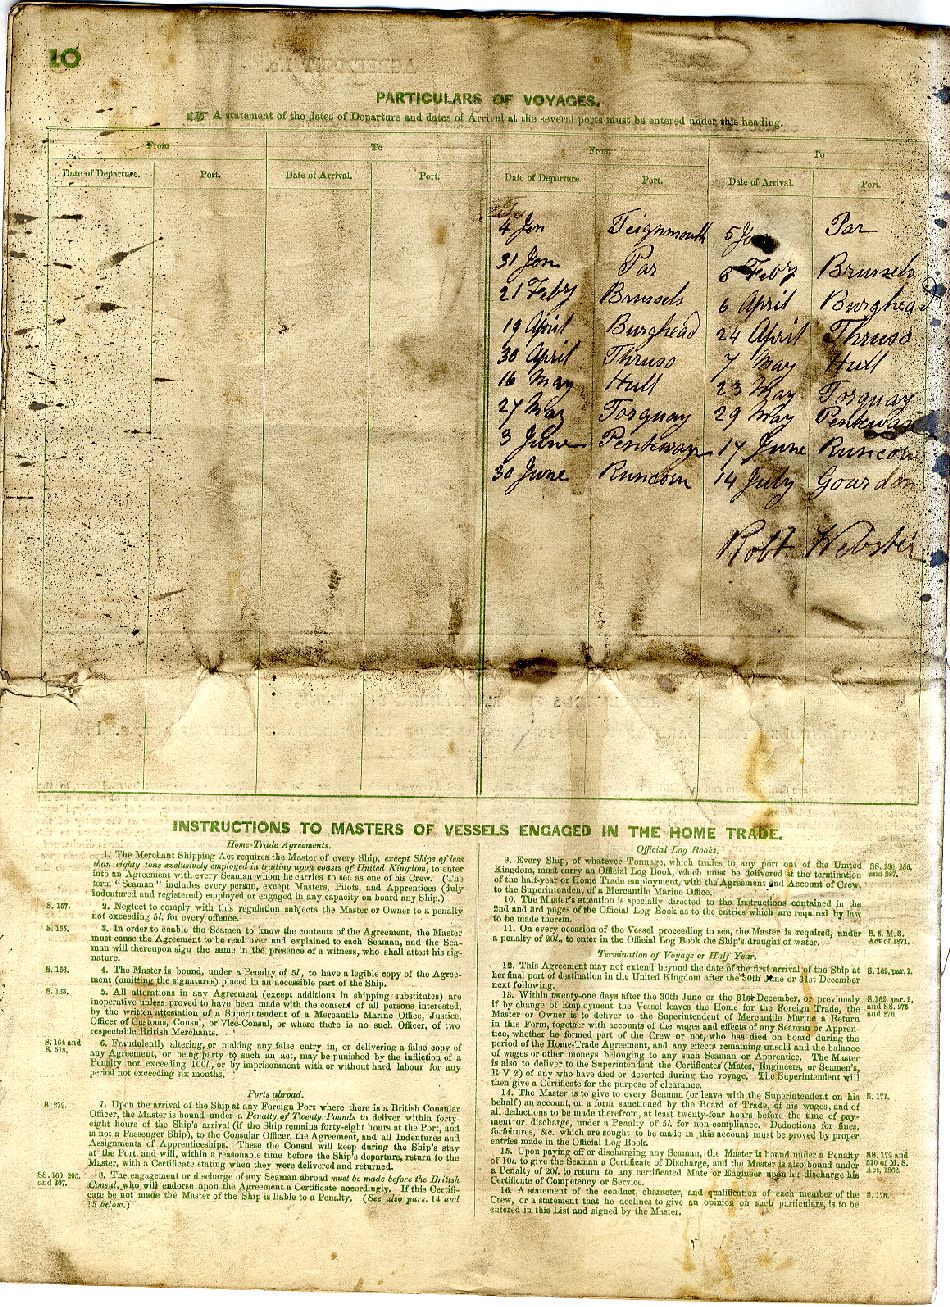 10
PARTICULARS OF VOYAGES.
A statement of the dates of Departure and dates of Arrival at the several ports must be entered under this heading.
From To From To
Date of Departure. Port. Date of Arrival. Port. Date of Departure. Port. Date of Arrival. Port.
4 Jan Teignmouth 5 Par
31 Jan Par 6 Feby Brussels
21 Feby Brussels 6 April Burghead
19 April Burghead 24 April Thruso
30 April Thruso 7 May Hull
16 May Hull 23 May Torquay
27 May Torquay 29 May Pentewan
3 June Pentewan 17 June Runcorn
30 June Runcorn 14 July Gourdon
Robt Webster
INSTRUCTIONS TO MASTERS OF VESSELS ENGAGED IN THE HOME TRADE.
Home-Trade Agreements.
1. The Merchant Shipping Act requires the Master of every Ship, except Ships of less
than eighty tons exclusively employed in trading upon coasts of United Kingdom, to enter
into an Agreement with every Seaman whom he carries to sea as one of his Crew. (The
term "Seaman" includes every person, except Masters, Pilots, and Apprentices (duly
indentured and registered) employed or engaged in any capacity on board any Ship.)
S. 157. 2. Neglect to comply with this regulation subjects the Master or Owner to a penalty
not exceeding 5l. for every offence.
S. 155. 3. In order to enable the Seamen to know the contents of the Agreement, the Master
must cause the Agreement to be read over and explained to each Seaman, and the Sea-
man will thereupon sign the same in the presence of a witness, who shall attest his sig-
nature.
S. 166. 4. The Master is bound, under a Penalty of 5l., to have a legible copy of the Agree-
ment (omitting the signatures) placed in an accessible part of the Ship.
S. 163. 5. All alterations in any Agreement (except additions in shipping substitutes) are
inoperative unless proved to have been made with the consent of all persons interested,
by the written attestation of a Superintendent of a Mercantile Marine Office, Justice,
Officer of Customs, Consul, or Vice-Consul, or where there is no such Officer, of two
respectable British Merchants.
S. 164 and 6. Fraudulently altering, or making any false entry in, or delivering a false copy of
any Agreement, or being party to such an act, may be punished by the infliction of a
Penalty not exceeding 100l., or by imprisonment with or without hard labour for any
period not exceeding six months.
Ports abroad.
S. 279. 7. Upon the arrival of the Ship at any Foreign Port where there is a British Consular
Officer, the Master is bound under a Penalty of Twenty Pounds to deliver within forty-
eight hours of the Ship's arrival (if the Ship remains forty-eight hours at the Port, and
is not a Passenger Ship), to the Consular Officer, the Agreement, and all Indentures and
Assignments of Apprenticeships. These the Consul will keep during the Ship's stay
at the Port and will, within a reasonable time before the Ship's departure, return to the
Master, with a Certificate stating when they were delivered and returned.
8. The engagement or discharge of any Seaman abroad must be made before the British
Consul, who will endorse upon the Agreement a Certificate accordingly. If this Certifi-
cate be not made the Master of the Ship is liable to a Penalty. (See also pars. 14 and
15 below.)
Official Log Books.
9. Every Ship, of whatever Tonnage, which trades to any port out of the United
Kingdom, must carry an Official Log Book, which must be delivered at the termination
of the half-year or Home Trade employment, with the Agreement and Account of Crew,
to the Superintendent of a Mercantile Marine Office.
10. The Master's attention is specially directed to the Instructions contained in the
2nd and 3rd pages of the Official Log Book as to the entries which are required by law
to be made therein.
11. On every occasion of the Vessel proceeding to sea, the Master is required, under
a penalty of 20l., to enter in the Official Log Book the Ship's draught of water.
Termination of Voyage or Half Year.
12. This Agreement may not extend beyond the date of the first arrival of the Ship at
her final port of destination in the United Kingdom after the 30th June or 31st December
next following.
13. Within twenty-one days after the 30th June or the 31st December, or previously
if by change of Employment the Vessel leaves the Home for the Foreign Trade, the
Master or Owner is to deliver to the Superintendent of Mercantile Marine a Return
in this Form, together with accounts of the wages and effects of any Seaman or Appren-
tice, whether he formed part of the Crew or not, who has died on board during the
period of the Home-Trade Agreement, and any effects remaining unsold and the balance
of wages or other moneys belonging to any such Seaman or Apprentice. The Master
is also to deliver to the Superintendent the Certificates (Mates, Engineers, or Seamen's,
R V 2) of any who have died or deserted during the voyage. The Superintendent will
then give a Certificate for the purpose of clearance.
14. The Master is to give to every Seaman (or leave with the Superintendent on his S. 171.
behalf) an account, on a form sanctioned by the Board of Trade, of his wages, and of
all deductions to be made therefrom, at least twenty-four hours before the time of pay-
ment or discharge, under a Penalty of 5l. for non-compliance. Deductions for fines,
forfeitures, &c. which are sought to be made in this account must be proved by proper
entries made in the Official Log Book.
15. Upon paying off or discharging any Seaman, the Master is bound under a Penalty
of 10l. to give the Seaman a Certificate of Discharge, and the Master is also bound under
a Penalty of 20l. to return to any certificated Mate or Engineer upon his discharge his
Certificate of Competency or Service.
16. A statement of the conduct, character, and qualification of each member of the
Crew, or a statement that he declines to give an opinion on such particulars, is to be
entered in this List and signed by the Master.